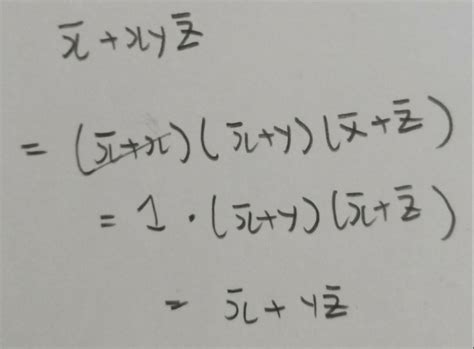 x̄ + xyz̄
= (x̄+x)(x̄+y)(x̄+z̄)
= 1 · (x̄+y)(x̄+z̄)
= x̄ + yz̄